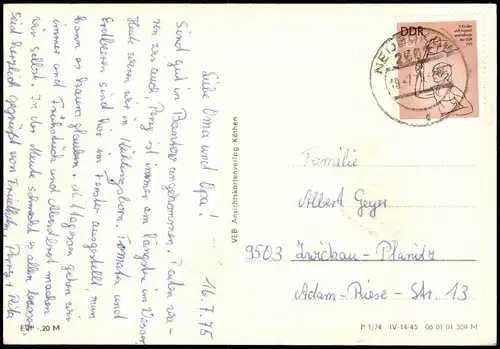 16.7.75
Liebe Oma und Opa!
Sind gut in Bansin angekommen. Baden wa-
ren wir auch, Peng ist immer am längsten im Wasser.
Heute waren wir in Kühlungsborn. Tomaten und
Erdbeeren sind hier im Fenster ausgestellt, man
kann es kaum glauben. Mittagessen gehen wir
immer und Frühstück und Abendbrot machen
wir selbst. in der Meute schmeckt es allen besser.
Seid herzlich gegrüßt von Friedhelm, Peng + Rita
EVP -,20 M
VEB Ansichtskartenverlag Köthen
DDR
V. Kinder-
und Jugend-
spartakiade
der DDR
1975
Familie
Albert Geyer
9503 Zwickau-Planitz
Adam-Riese-Str. 13
P 1/74 IV-14-45 06 01 01 309 M